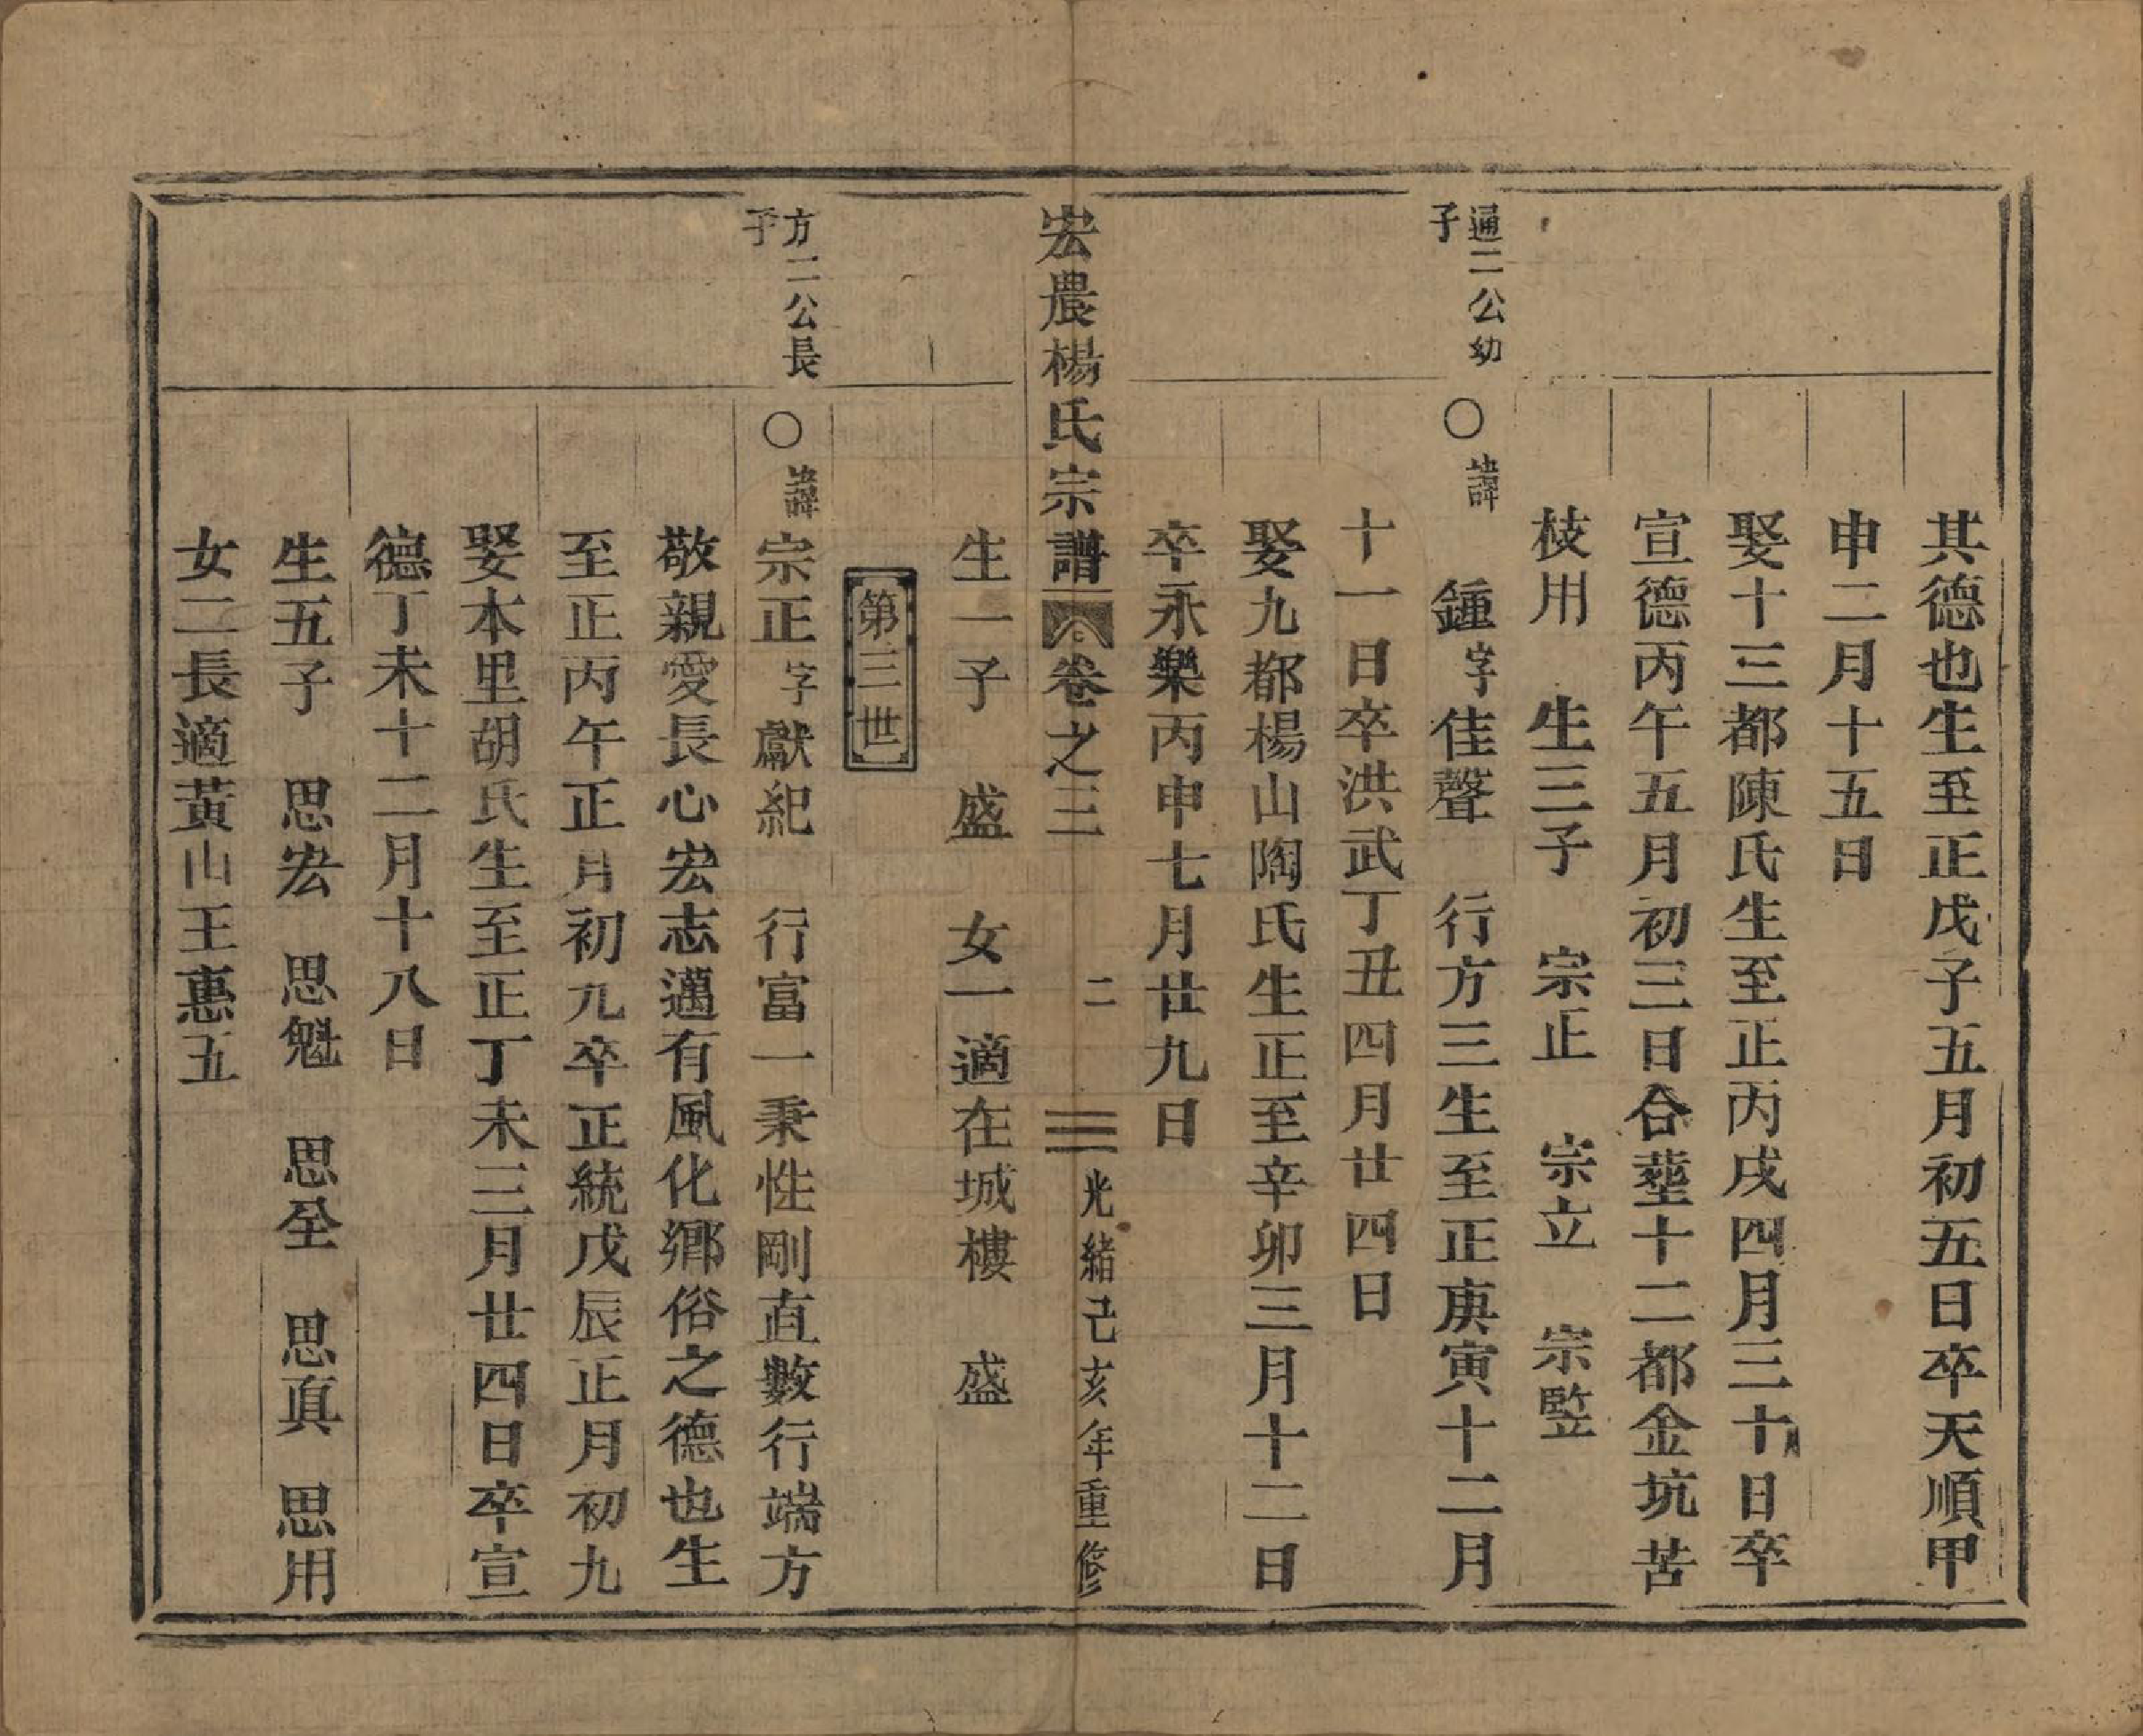 其德也生至正戊子五月初五日卒天順甲
申二月十五日
娶十三都陳氏生至正丙戌四月三十日卒
宣德丙午五月初三日合塟十二都金坑苦
枝用 生三子 宗正 宗立 宗監
通二公幼
子
○諱 鍾字佳聲 行方三生至正庚寅十二月
十一日卒洪武丁丑四月廿四日
娶九都楊山陶氏生正至辛卯三月十二日
卒永樂丙申七月廿九日
宏農楊氏宗譜 卷之三 二 光緒己亥年重修
生一子 盛 女一適在城樓 盛
第三世
方二公長
子
○諱宗正字獻紀 行富一秉性剛直數行端方
敬親愛長心宏志邁有風化鄉俗之德也生
至正丙午正月初九卒正統戊辰正月初九
娶本里胡氏生至正丁未三月廿四日卒宣
德丁未十二月十八日
生五子 思宏 思魁 思全 思眞 思用
女二長適黃山王惠五